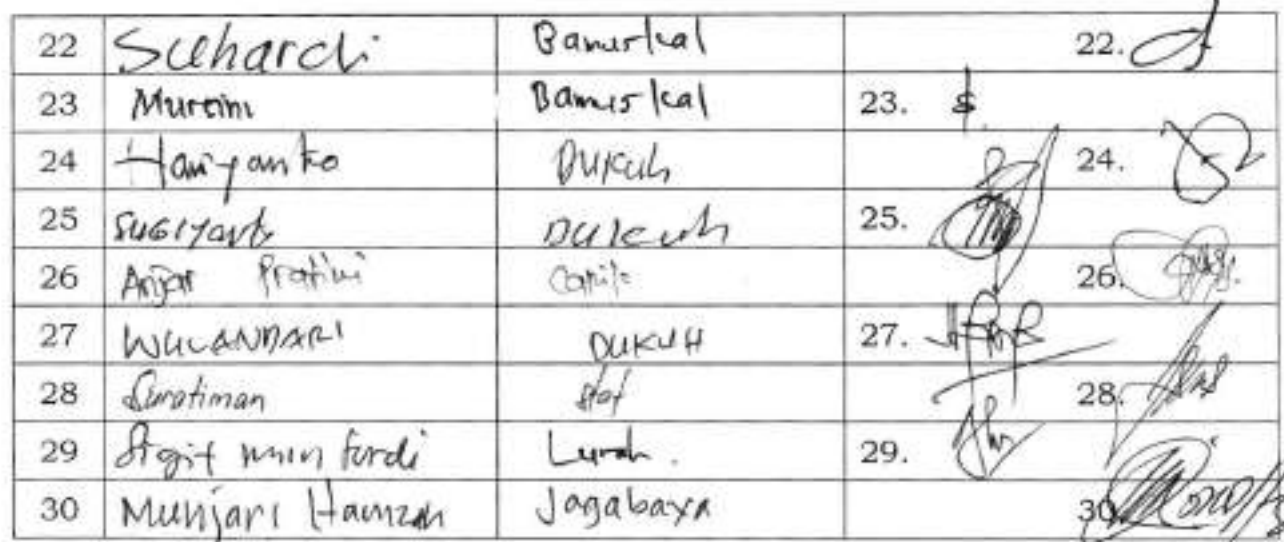 22 Suhardi Bamuskal 22.
23 Murtini Bamuskal 23.
24 Hariyanto Dukuh 24.
25 Sugiyanto Dukuh 25.
26 Anjar Pratiwi Carik 26.
27 WULANDARI DUKUH 27.
28 Suratiman Staf 28.
29 Sigit Lurah. 29.
30 Munjari Hamzah Jagabaya 30.